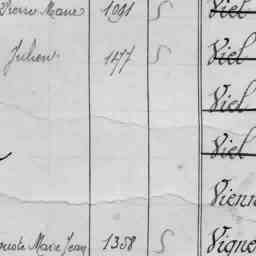 Pierre Marie 1091 S Viel
Julien 1477 S Viel
Viel
Viel
Vienn
Marie Jean 1358 S Vigne